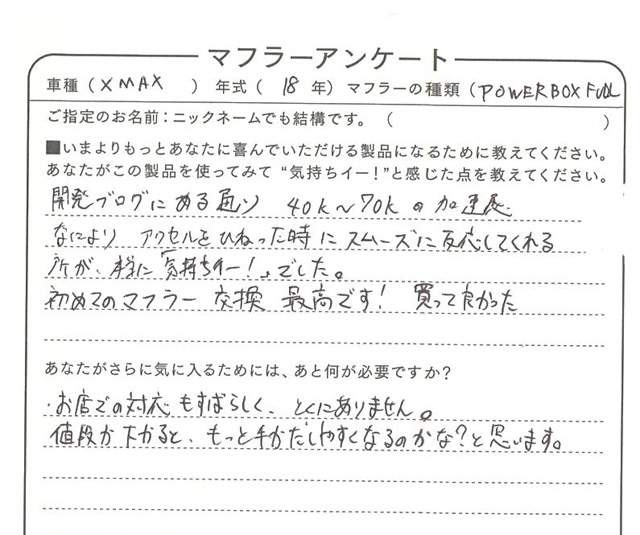 マフラーアンケート
車種（XMAX ）年式（18年）マフラーの種類（POWERBOX FULL
ご指定のお名前：ニックネームでも結構です。（ ）
■いまよりもっとあなたに喜んでいただける製品になるために教えてください。
あなたがこの製品を使ってみて“気持ちイー！”と感じた点を教えてください。
開発ブログにある通り 40k～70kの加速感
なにより アクセルをひねった時にスムーズに反応してくれる
所が、本当に「気持ちイー！」でした。
初めてのマフラー交換 最高です！ 買って良かった
あなたがさらに気に入るためには、あと何が必要ですか？
・お店での対応もすばらしく、とくにありません。
値段が下がると、もっと手がだしやすくなるのかな？と思います。